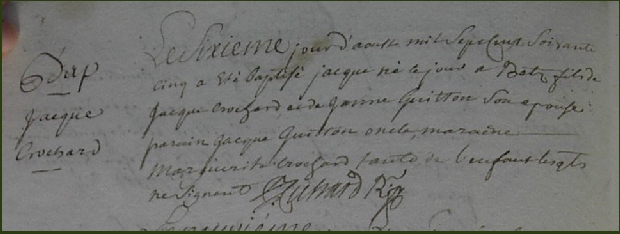 Bap
jacque
Crochard
Le Sixieme jour d'aoust mil Sept cent Soixante
cinq a eté baptisé jacque né le jour a Batz fils de
jacque Crochard et de janne Guitton Son epouse
parain jacque Guitton oncle maraine
Marguerite Crochard tante de l'enfant lesqts
ne Signent
Le neuvième